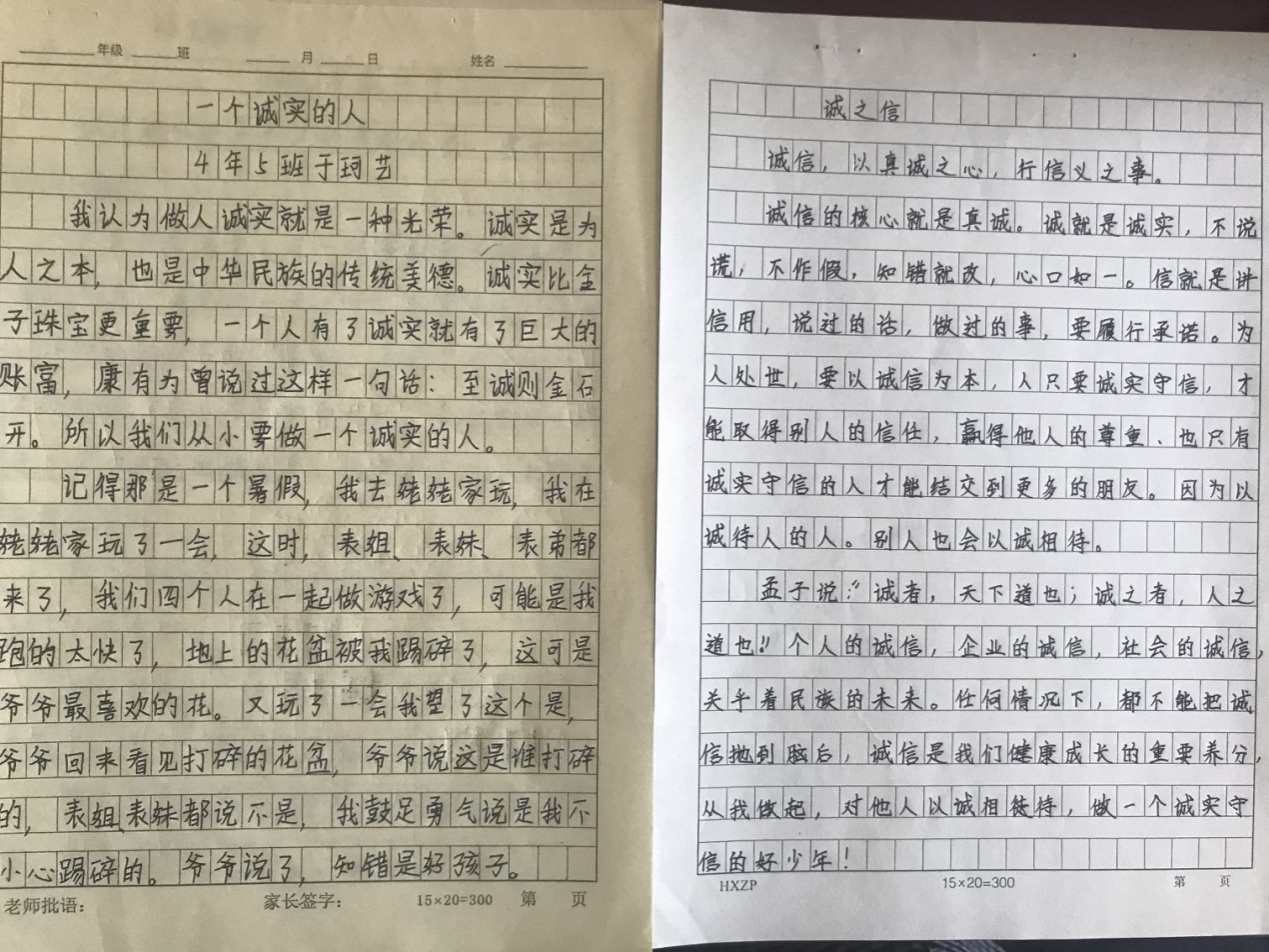 年级 班 月 日 姓名
一个诚实的人
4年5班于珂艺
我认为做人诚实就是一种光荣。诚实是为
人之本，也是中华民族的传统美德。诚实比金
子珠宝更重要，一个人有了诚实就有了巨大的
账富，康有为曾说过这样一句话：至诚则金石
开。所以我们从小要做一个诚实的人。
记得那是一个暑假，我去姥姥家玩，我在
姥姥家玩了一会，这时，表姐、表妹、表弟都
来了，我们四个人在一起做游戏了，可能是我
跑的太快了，地上的花盆被我踢碎了，这可是
爷爷最喜欢的花。又玩了一会我望了这个是，
爷爷回来看见打碎的花盆，爷爷说这是谁打碎
的，表姐、表妹都说不是，我鼓足勇气说是我不
小心踢碎的。爷爷说了，知错是好孩子。
老师批语： 家长签字： 15×20=300 第 页
诚之信
诚信，以真诚之心，行信义之事。
诚信的核心就是真诚。诚就是诚实，不说
谎，不作假，知错就改，心口如一。信就是讲
信用，说过的话，做过的事，要履行承诺。为
人处世，要以诚信为本，人只要诚实守信，才
能取得别人的信任，赢得他人的尊重、也只有
诚实守信的人才能结交到更多的朋友。因为以
诚待人的人。别人也会以诚相待。
孟子说：“诚者，天下道也；诚之者，人之
道也！”个人的诚信，企业的诚信，社会的诚信，
关乎着民族的未来。任何情况下，都不能把诚
信抛到脑后，诚信是我们健康成长的重要养分，
从我做起，对他人以诚相徒待，做一个诚实守
信的好少年！
HXZP 15×20=300 第 页